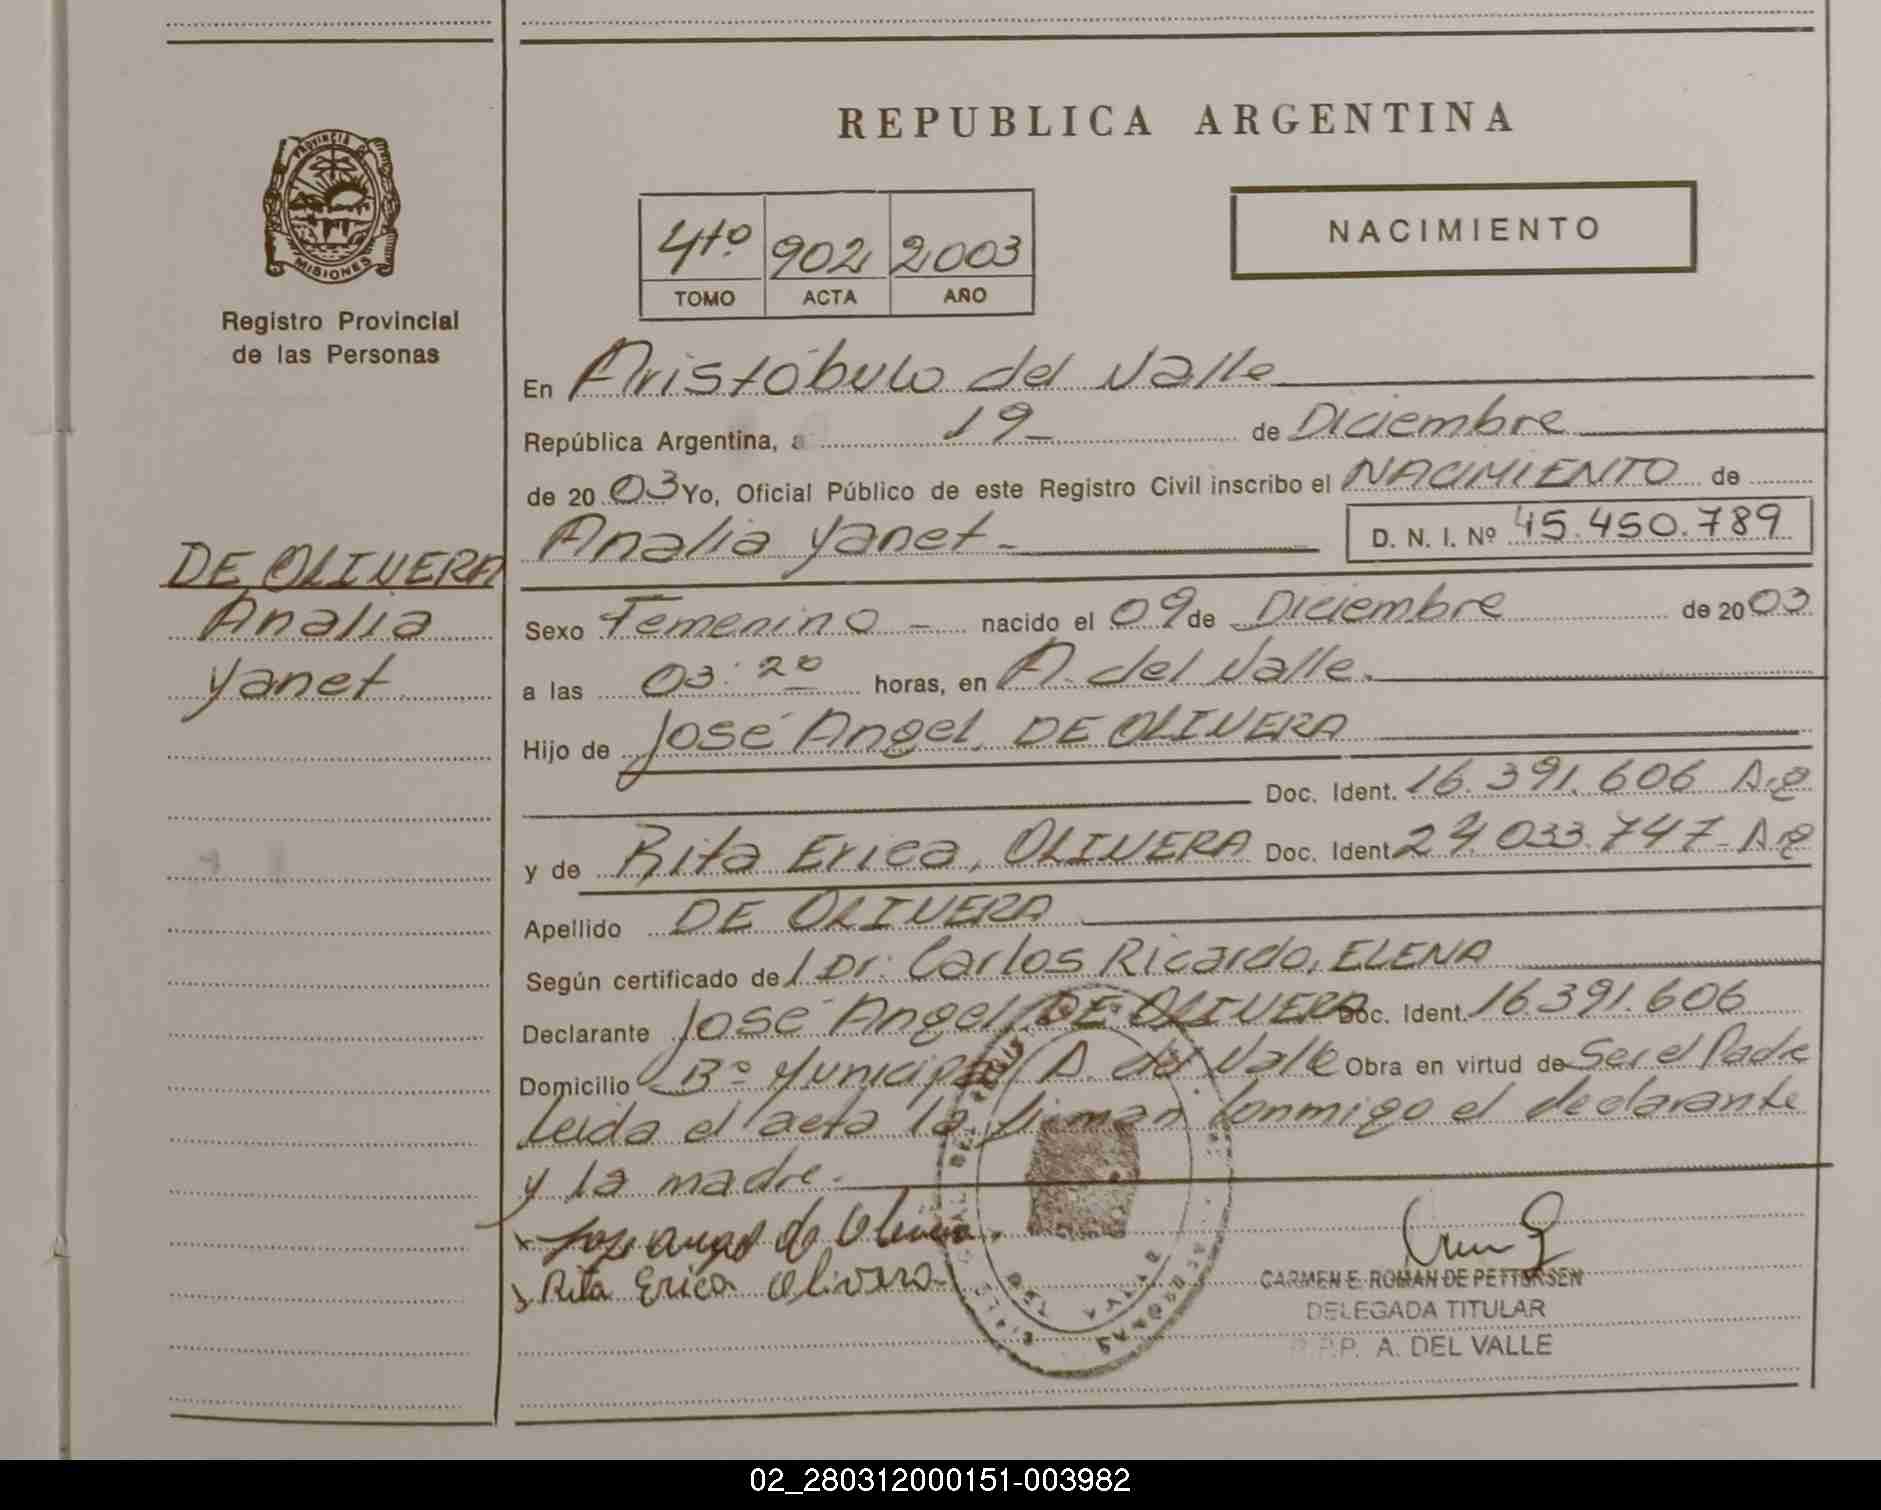 REPUBLICA ARGENTINA
PROVINCIA DE
MISIONES
Registro Provincial
de las Personas
4to 902 2003
TOMO ACTA AÑO
NACIMIENTO
En Aristóbulo del Valle
República Argentina, a 19 de Diciembre
de 20 03 Yo, Oficial Público de este Registro Civil inscribo el NACIMIENTO de
Analia Yanet D. N. I. Nº 45.450.789
DE OLIVERA
Analia
Yanet
Sexo Femenino nacido el 09 de Diciembre de 20 03
a las 03:20 horas, en A. del Valle.
Hijo de José Angel, DE OLIVERA
Doc. Ident. 16.391.606 Arg
y de Rita Erica, OLIVERA Doc. Ident. 24.033.747- Arg
Apellido DE OLIVERA
Según certificado de l Dr. Carlos Ricardo, ELENA
Declarante José Angel, DE OLIVERA Doc. Ident. 16.391.606
Domicilio Bº Municipal A. del Valle Obra en virtud de Ser el Padre
Leida el acta la firman conmigo el declarante
y la madre.
Jose angel de Olivera
Rita Erica Olivera
CARMEN E. ROMAN DE PETTERSEN
DELEGADA TITULAR
R.P.P. A. DEL VALLE
DEL VALLE
02_280312000151-003982